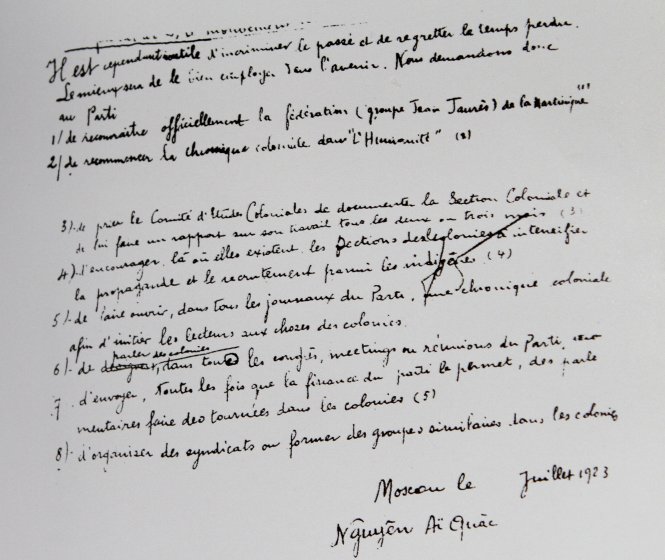 Il est cependant inutile d'incriminer le passé et de regretter le temps perdu.
Le mieux sera de le bien employer dans l'avenir. Nous demandons donc
au Parti
1/ de reconnaître officiellement la fédération (groupe Jean Jaurès) de la Martinique (1)
2/ de recommencer la chronique coloniale dans "L'Humanité" (2)
3/- de prier le Comité d'Etudes Coloniales de documenter la Section Coloniale et
de lui faire un rapport sur son travail tous les deux ou trois mois (3)
4/- d'encourager là où elles existent les sections des colonies à intensifier
la propagande et le recrutement parmi les indigènes (4)
5/- de faire ouvrir, dans tous les journaux du Parti, une chronique coloniale
afin d'initier les lecteurs aux choses des colonies.
parler des colonies
6/- de dans tous les congrès, meetings ou réunions du Parti,
7 d'envoyer, toutes les fois que la finance du parti le permet, des parle
mentaires faire des tournées dans les colonies (5)
8/- d'organiser des syndicats ou former des groupes similaires dans les colonies
Moscou le Juillet 1923
Nguyên Aï Quâc